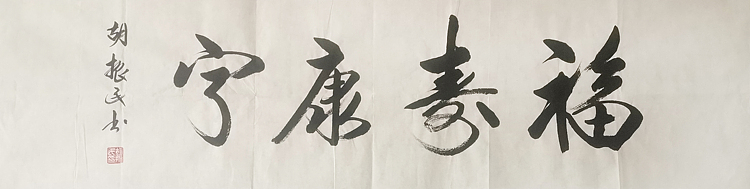 福寿康宁
胡振民书